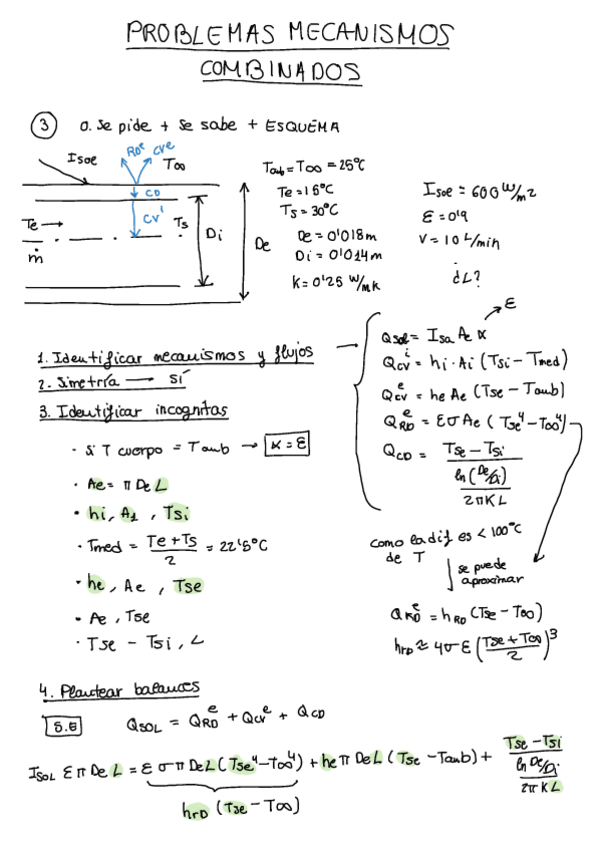 PROBLEMAS MECANISMOS
COMBINADOS
③ 0. Se pide + Se sabe + ESQUEMA
Isoe
RDe
cve
T∞
CD
cvi
Te →
ṁ
Ts
Di
De
Tamb = T∞ = 25°C
Te = 15°C
Ts = 30°C
De = 0'018 m
Di = 0'014 m
K = 0'25 W/mK
Isoe = 600 W/m2
ε = 0'9
V = 10 L/min
¿L?
1. Identificar mecanismos y flujos
2. Simetría → SÍ
3. Identificar incognitas
· Si T cuerpo = Tamb → α = ε
· Ae = π De L
· hi, A1, Tsi
· Tmed = (Te + Ts)/2 = 22'5°C
· he, Ae, Tse
· Ae, Tse
· Tse - Tsi, L
ε
Qsol = Isol Ae α
Qcv^i = hi · Ai (Tsi - Tmed)
Qcv^e = he Ae (Tse - Tamb)
QRD^e = εσ Ae (Tse⁴ - T∞⁴)
QCD = (Tse - Tsi) / (ln(De/Di) / 2πKL)
como la dif es < 100°C
de T
se puede
aproximar
QRD^e = hRD (Tse - T∞)
hRD ≈ 4σ ε ((Tse + T∞)/2)³
4. Plantear balances
S.E
QSOL = QRD^e + Qcv^e + QCD
ISOL ε π De L = ε σ π De L (Tse⁴ - T∞⁴) + he π De L (Tse - Tamb) + (Tse - Tsi) / (ln De/Di / 2π K L)
hrD (Tse - T∞)